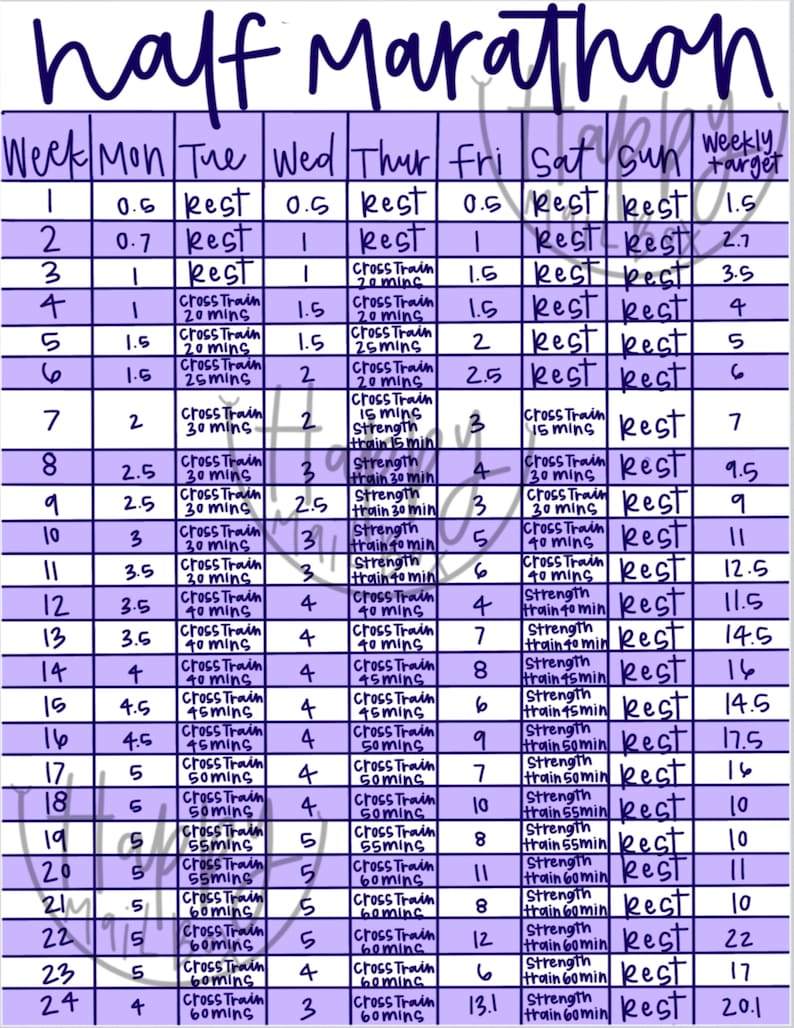 Half Marathon
Week Mon Tue Wed Thur Fri Sat Sun Weekly target
1 0.5 Rest 0.5 Rest 0.5 Rest Rest 1.5
2 0.7 Rest 1 Rest 1 Rest Rest 2.7
3 1 Rest 1 Cross Train 20 mins 1.5 Rest Rest 3.5
4 1 Cross Train 20 mins 1.5 Cross Train 20 mins 1.5 Rest Rest 4
5 1.5 Cross Train 20 mins 1.5 Cross Train 25 mins 2 Rest Rest 5
6 1.5 Cross Train 25 mins 2 Cross Train 20 mins 2.5 Rest Rest 6
7 2 Cross Train 30 mins 2 Cross Train 15 mins Strength train 15 min 3 Cross Train 15 mins Rest 7
8 2.5 Cross Train 30 mins 3 Strength train 30 min 4 Cross Train 30 mins Rest 9.5
9 2.5 Cross Train 30 mins 2.5 Strength train 30 min 3 Cross Train 30 mins Rest 9
10 3 Cross Train 30 mins 3 Strength train 40 min 5 Cross Train 40 mins Rest 11
11 3.5 Cross Train 30 mins 3 Strength train 40 min 6 Cross Train 40 mins Rest 12.5
12 3.5 Cross Train 40 mins 4 Cross Train 40 mins 4 Strength train 40 min Rest 11.5
13 3.5 Cross Train 40 mins 4 Cross Train 40 mins 7 Strength train 40 min Rest 14.5
14 4 Cross Train 40 mins 4 Cross Train 45 mins 8 Strength train 45 min Rest 16
15 4.5 Cross Train 45 mins 4 Cross Train 45 mins 6 Strength train 45 min Rest 14.5
16 4.5 Cross Train 45 mins 4 Cross Train 50 mins 9 Strength train 50 min Rest 17.5
17 5 Cross Train 50 mins 4 Cross Train 50 mins 7 Strength train 50 min Rest 16
18 5 Cross Train 50 mins 4 Cross Train 50 mins 10 Strength train 55 min Rest 10
19 5 Cross Train 55 mins 5 Cross Train 55 mins 8 Strength train 55 min Rest 10
20 5 Cross Train 55 mins 5 Cross Train 60 mins 11 Strength train 60 min Rest 11
21 5 Cross Train 60 mins 5 Cross Train 60 mins 8 Strength train 60 min Rest 10
22 5 Cross Train 60 mins 5 Cross Train 60 mins 12 Strength train 60 min Rest 22
23 5 Cross Train 60 mins 4 Cross Train 60 mins 6 Strength train 60 min Rest 17
24 4 Cross Train 60 mins 3 Cross Train 60 mins 13.1 Strength train 60 min Rest 20.1
Happy
Mail Box
Happy
Mail Box
Happy
Mail Box